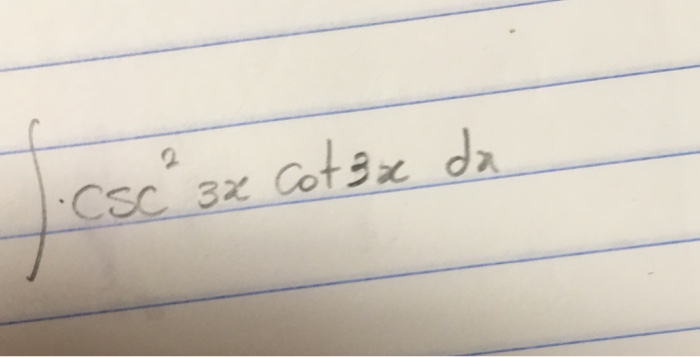 ∫ csc² 3x cot 3x dx